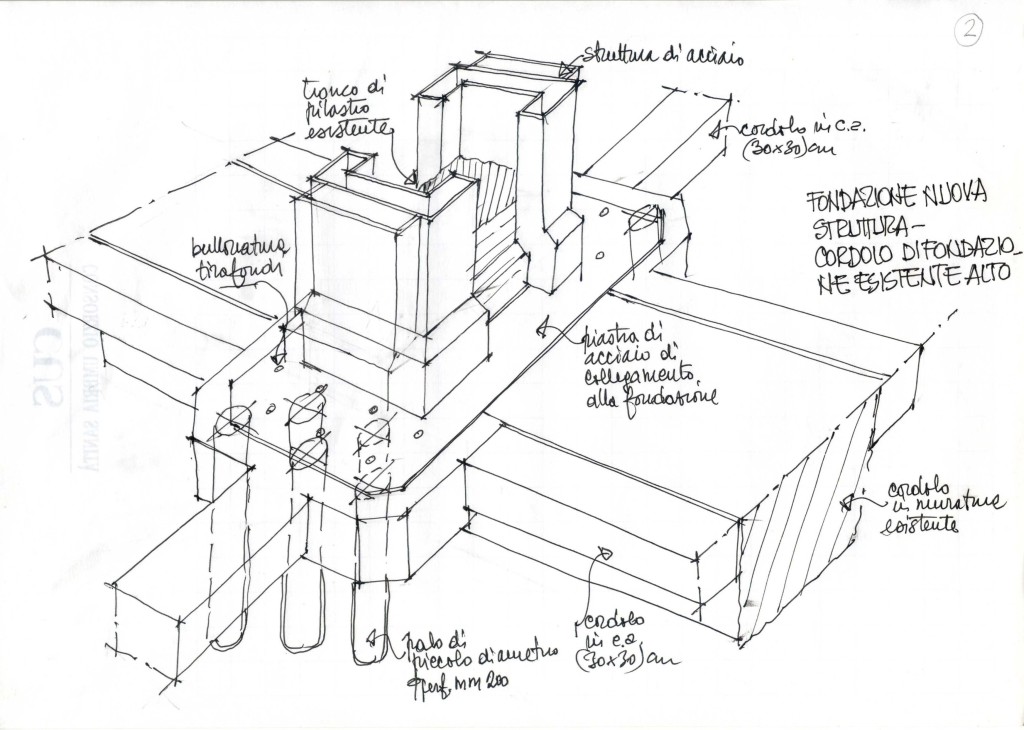 2
struttura di acciaio
tronco di
pilastro
esistente
cordolo in c.a.
(30x30)cm
FONDAZIONE NUOVA
STRUTTURA-
CORDOLO DI FONDAZIO-
NE ESISTENTE ALTO
bullonatura
tirafondi
piastra di
acciaio di
collegamento
alla fondazione
cordolo
in muratura
esistente
cordolo
in c.a.
(30x30)cm
palo di
piccolo diametro
perf. mm 200